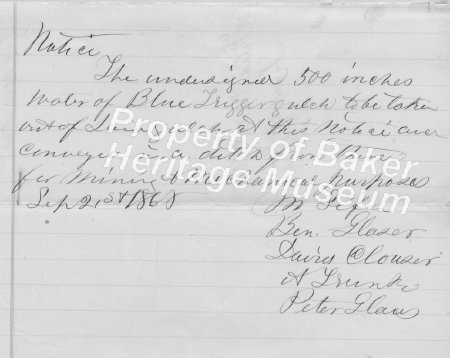 Notice
The undersigned 500 inches
water of Blue Trigger gulch to be taken
out of gulch at this Notice and
conveyed in a ditch from there
for Mining & Mechanical Purposes
Sep 21st 1868
M
Ben Glaser
David Clouser
A
Peter Glaus
Property of Baker
Heritage Museum